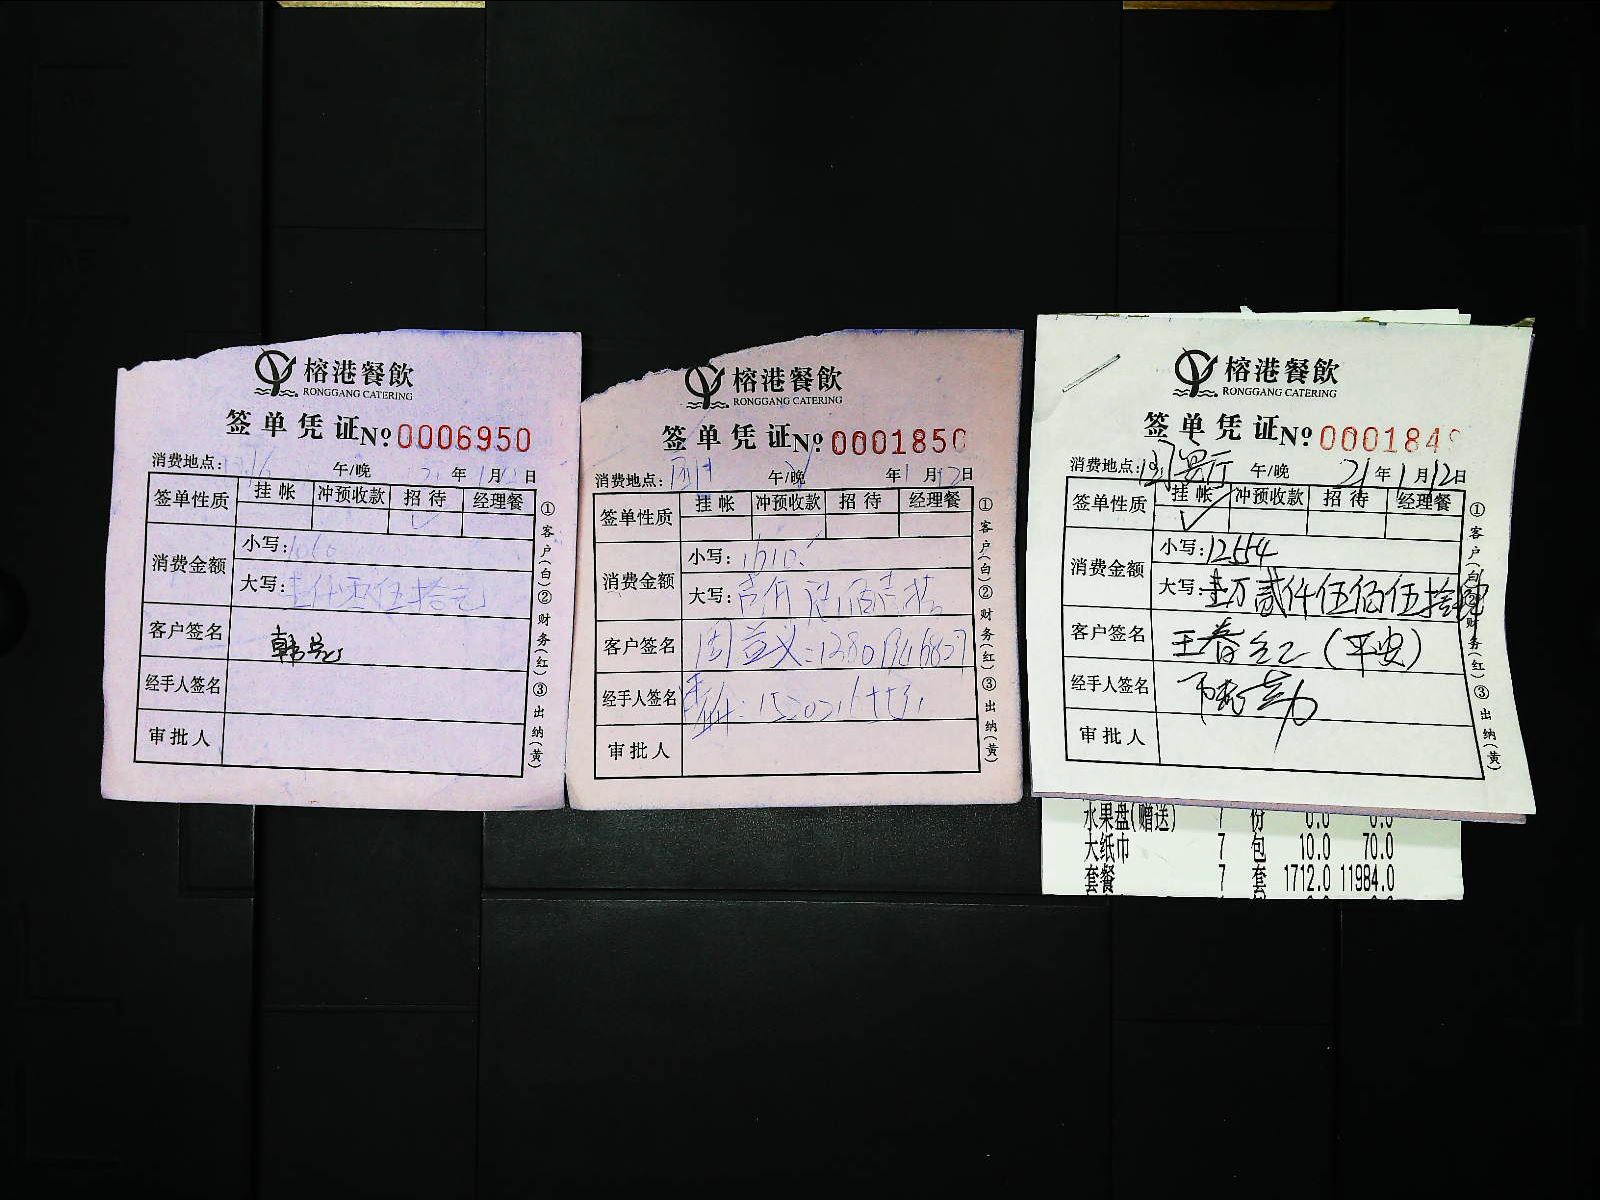 榕港餐飲
RONGGANG CATERING
签单凭证 №0006950
消费地点: 午/晚 年 1月 日
签单性质 挂帐 冲预收款 招待 经理餐
消费金额 小写:1050
大写:壹仟零伍拾元
客户签名 韩
经手人签名
审批人
①客户(白)②财务(红)③出纳(黄)
榕港餐飲
RONGGANG CATERING
签单凭证 №0001850
消费地点: 午/晚 年 1月12日
签单性质 挂帐 冲预收款 招待 经理餐
消费金额 小写:1610.
大写:壹仟陆佰壹拾
客户签名 周益义:
经手人签名
审批人
①客户(白)②财务(红)③出纳(黄)
榕港餐飲
RONGGANG CATERING
签单凭证 №000184
消费地点: 午/晚 21年1月12日
签单性质 挂帐 冲预收款 招待 经理餐
消费金额 小写:12554
大写:壹万贰仟伍佰伍拾
客户签名 王春红(平安)
经手人签名
审批人
①客户(白)②财务(红)③出纳(黄)
水果盘(赠送) 7 份 0.0 0.0
大纸巾 7 包 10.0 70.0
套餐 7 套 1712.0 11984.0